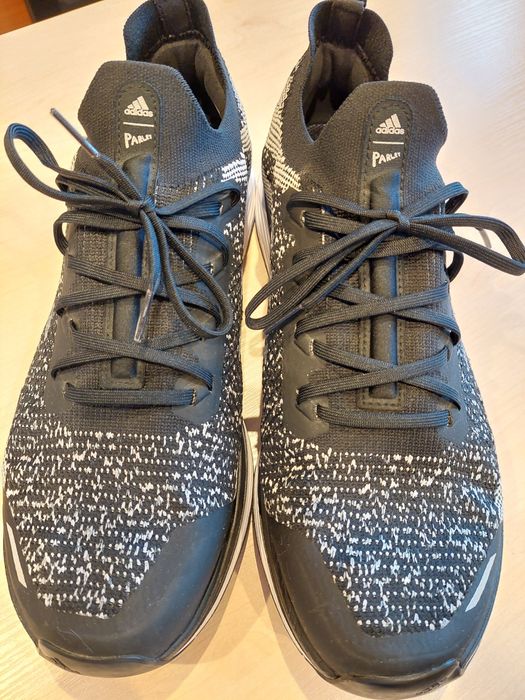 adidas
PARLEY
adidas
PARLEY